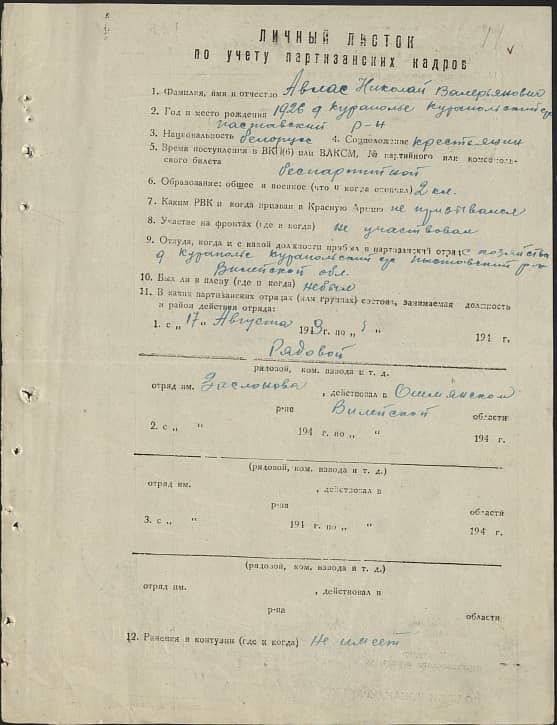 ЛИЧНЫЙ ЛИСТОК
по учету партизанских кадров
1. Фамилия, имя и отчество Авлас Николай Валерьянович
2. Год и место рождения 1926 д Курополье Куропольский с/с
р-н
3. Национальность белорус 4. Соцположение крестьянин
5. Время поступления в ВКП(б) или ВЛКСМ, № партийного или комсомоль-
ского билета
беспартийной
6. Образование: общее и военное (что и когда окончил) 2 кл.
7. Каким РВК и когда призван в Красную Армию не призывался
8. Участие на фронтах (где и когда) не участвовал
9. Откуда, когда и с какой должности прибыл в партизанский отряд с хозяйства
д Курополье Куропольский с/с р-н
Вилейской обл.
10. Был ли в плену (где и когда) небыл
11. В каких партизанских отрядах (или группах) состоял, занимаемая должность
и район действия отряда:
1. с „ 17 " Августа 1943 г. по „ " 194 г.
Рядовой
рядовой, ком. взвода и т. д.
отряд им. Заслонова, действовал в Ошмянском
р-не Вилейской области
2. с „ " 194 г. по „ " 194 г.
(рядовой, ком. взвода и т. д.)
отряд им. , действовал в
р-на области
3. с „ " 194 г. по „ " 194 г.
(рядовой, ком. взвода и т. д.)
отряд им. , действовал в
р-на области
12. Ранения и контузии (где и когда) Не имеет